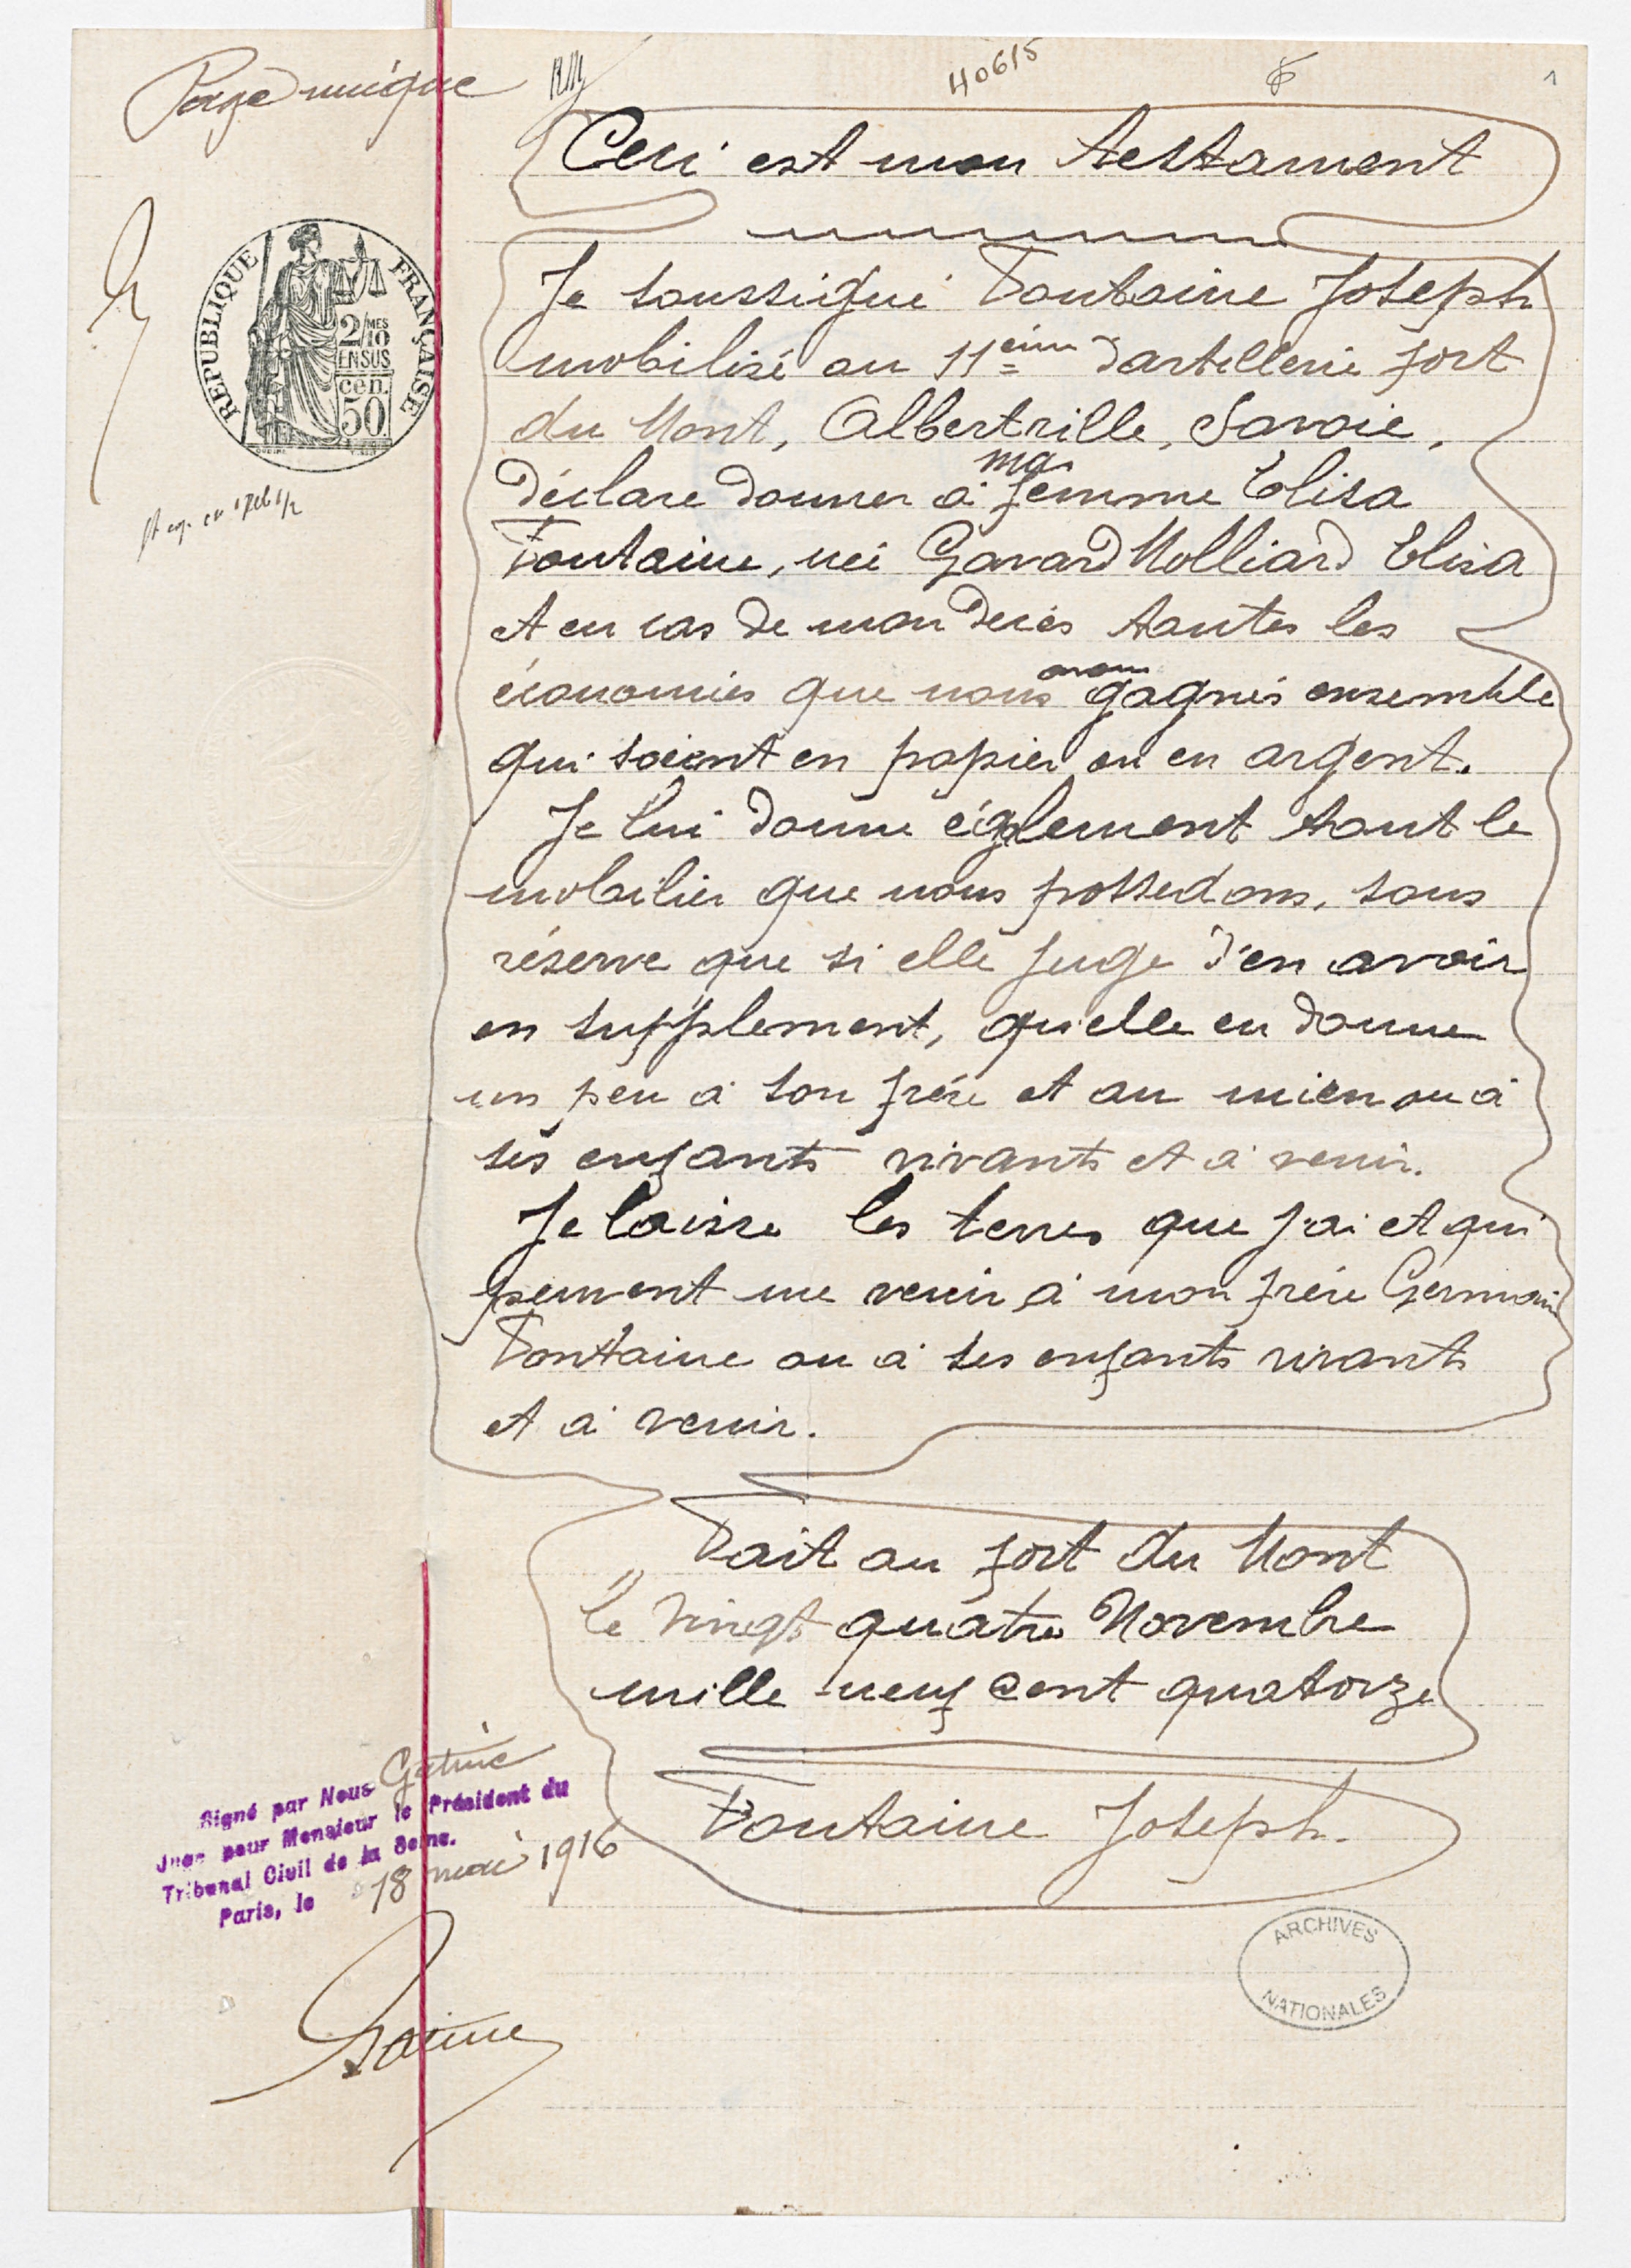 Page unique
40615
1
Ceci est mon testament
Je soussigné Fontaine Joseph
mobilisé au 11ème d'artillerie fort
du Mont, Albertville, Savoie,
déclare donner à ma femme Elisa
Fontaine, née Gavard Molliard Elisa
et en cas de mon décès toutes les
économies que nous avons gagnés ensemble
qui soient en papier ou en argent.
Je lui donne églement tout le
mobilier que nous possedons, sous
réserve que si elle juge d'en avoir
en supplement, qu'elle en donne
un peu à son frère et au mien ou à
ses enfants vivants et à venir.
Je laisse les terres que j'ai et qui
peuvent me venir à mon frère Germain
Fontaine ou à ses enfants vivants
et à venir.
Fait au fort du Mont
le vingt quatre Novembre
mille neuf cent quatorze
Fontaine Joseph.
RÉPUBLIQUE FRANÇAISE
2/10 MES
EN SUS
50 cen.
Signé par Nous
Juge pour Monsieur le Président du
Tribunal Civil de la Seine.
Paris, le 18 mai 1916
ARCHIVES
NATIONALES